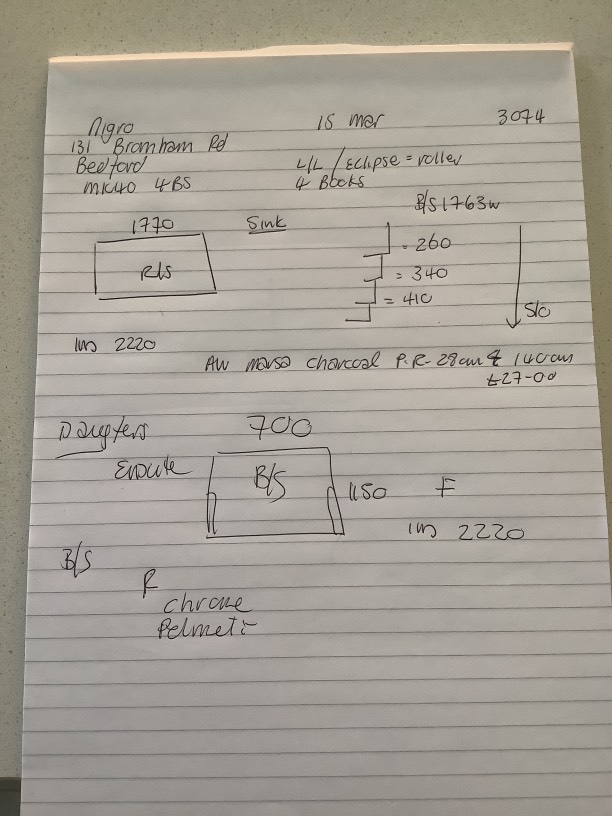 Nigro 15 mar 3074
131 Bromham Rd
Bedford L/L / Eclipse = roller
MK40 4BS 4 Books
B/S 1763w
1770 Sink
= 260
R/S = 340
= 410
S/O
2220
AW marsa charcoal P.R. 28cm & 140cm
£27-00
700
B/S
1150 F
2220
B/S
R
chrome
Pelmet:-